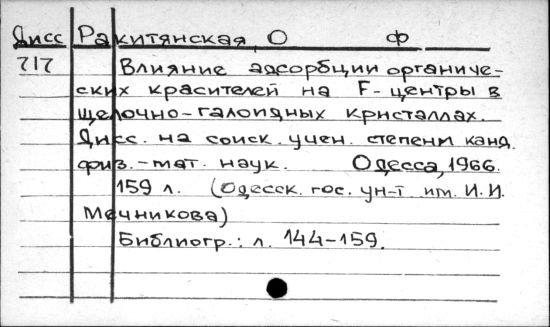 Дисс Ракитянская, О Ф
717 Влияние адсорбции органиче-
ских красителей на F-центры в
щелочно-галоидных кристаллах.
Дисс. на соиск. учен. степени канд.
физ.-мат. наук. Одесса, 1966.
159 л. (Одесск. гос. ун-т им. И.И.
Мечникова)
Библиогр.: л. 144-159.